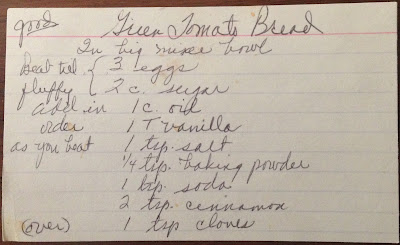 good Green Tomato Bread
In big mixer bowl
Beat til { 3 eggs
fluffy { 2 c. sugar
add in 1 c. oil
order 1 T vanilla
as you beat 1 tsp. salt
1/4 tsp. baking powder
1 tsp. soda
2 tsp. cinnamon
(over) 1 tsp cloves